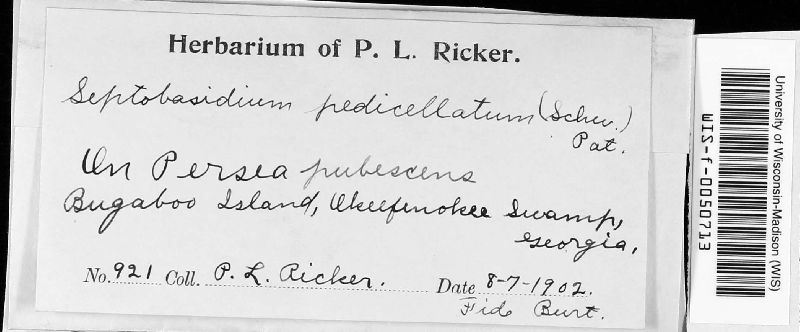 Herbarium of P. L. Ricker.
Septobasidium pedicellatum (Schw.)
Pat.
On Persea pubescens
Bugaboo Island, Okeefenokee Swamp,
Georgia,
No. 921 Coll. P. L. Ricker. Date 8-7-1902.
Fide Burt.
University of Wisconsin-Madison (WIS)
WIS-f-0050713